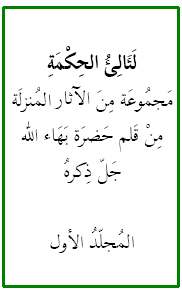 لَئَالِئُ الحِكْمَةِ
مَجمُوعَة مِنَ الآثار المُنزلَة
مِنْ قَلم حَضرَة بَهَاء الله
جَلّ ذِكرهُ
المُجلّدُ الأول